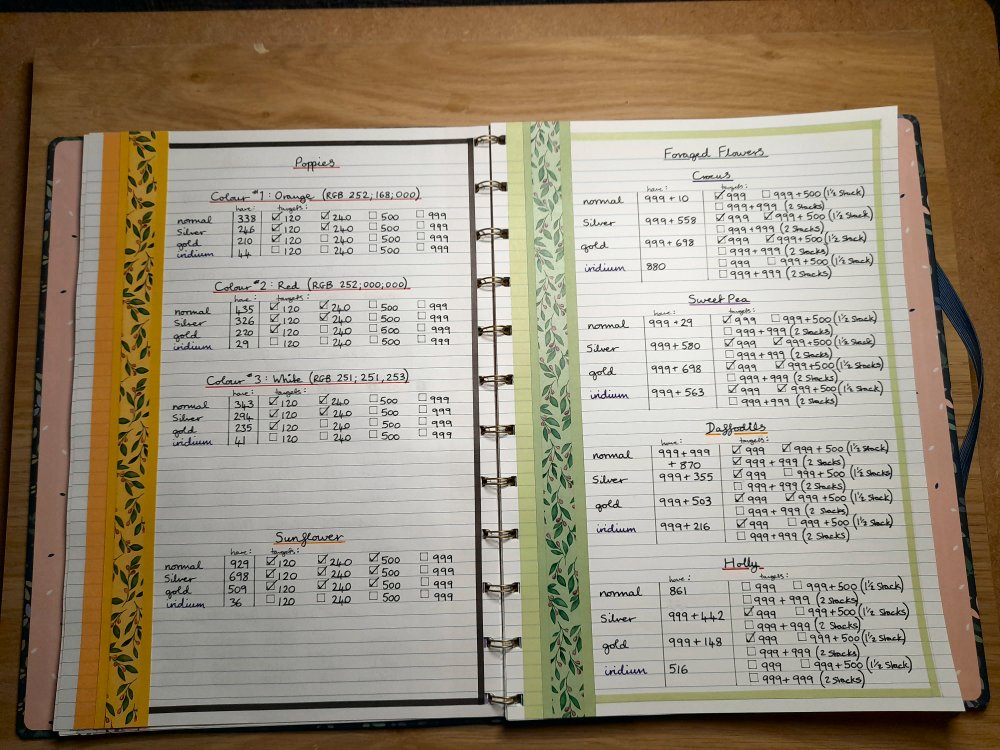 Poppies
Colour #1: Orange (RGB 252;168;000)
have: targets:
normal 338 ☑120 ☑240 ☐500 ☐999
Silver 246 ☑120 ☑240 ☐500 ☐999
gold 210 ☑120 ☐240 ☐500 ☐999
iridium 44 ☐120 ☐240 ☐500 ☐999
Colour #2: Red (RGB 252;000;000)
have: targets:
normal 435 ☑120 ☑240 ☐500 ☐999
Silver 326 ☑120 ☑240 ☐500 ☐999
gold 220 ☑120 ☐240 ☐500 ☐999
iridium 29 ☐120 ☐240 ☐500 ☐999
Colour #3: White (RGB 251; 251, 253)
have: targets:
normal 343 ☑120 ☑240 ☐500 ☐999
Silver 294 ☑120 ☑240 ☐500 ☐999
gold 235 ☑120 ☐240 ☐500 ☐999
iridium 41 ☐120 ☐240 ☐500 ☐999
Sunflower
have: targets:
normal 929 ☑120 ☑240 ☑500 ☐999
Silver 698 ☑120 ☑240 ☑500 ☐999
gold 509 ☑120 ☑240 ☑500 ☐999
iridium 36 ☐120 ☐240 ☐500 ☐999
Foraged Flowers
Crocus
have: targets:
normal 999+10 ☑999 ☐999+500 (1½ Stack)
☐999+999 (2 Stacks)
Silver 999+558 ☑999 ☑999+500 (1½ Stack)
☐999+999 (2 Stacks)
gold 999+698 ☑999 ☑999+500 (1½ Stack)
☐999+999 (2 Stacks)
iridium 880 ☐999 ☐999+500 (1½ Stack)
☐999+999 (2 Stacks)
Sweet Pea
have: targets:
normal 999+29 ☑999 ☐999+500 (1½ Stack)
☐999+999 (2 Stacks)
Silver 999+580 ☑999 ☑999+500 (1½ Stack)
☐999+999 (2 Stacks)
gold 999+698 ☑999 ☑999+500 (1½ Stack)
☐999+999 (2 Stacks)
iridium 999+563 ☑999 ☑999+500 (1½ Stack)
☐999+999 (2 Stacks)
Daffodils
have: targets:
normal 999+999 ☑999 ☑999+500 (1½ Stack)
+870 ☑999+999 (2 Stacks)
Silver 999+355 ☑999 ☐999+500 (1½ Stack)
☐999+999 (2 Stacks)
gold 999+503 ☑999 ☑999+500 (1½ Stack)
☐999+999 (2 Stacks)
iridium 999+216 ☑999 ☐999+500 (1½ Stack)
☐999+999 (2 Stacks)
Holly
have: targets:
normal 861 ☐999 ☐999+500 (1½ Stack)
☐999+999 (2 Stacks)
Silver 999+442 ☑999 ☐999+500 (1½ Stack)
☐999+999 (2 Stacks)
gold 999+148 ☑999 ☐999+500 (1½ Stack)
☐999+999 (2 Stacks)
iridium 516 ☐999 ☐999+500 (1½ Stack)
☐999+999 (2 Stacks)